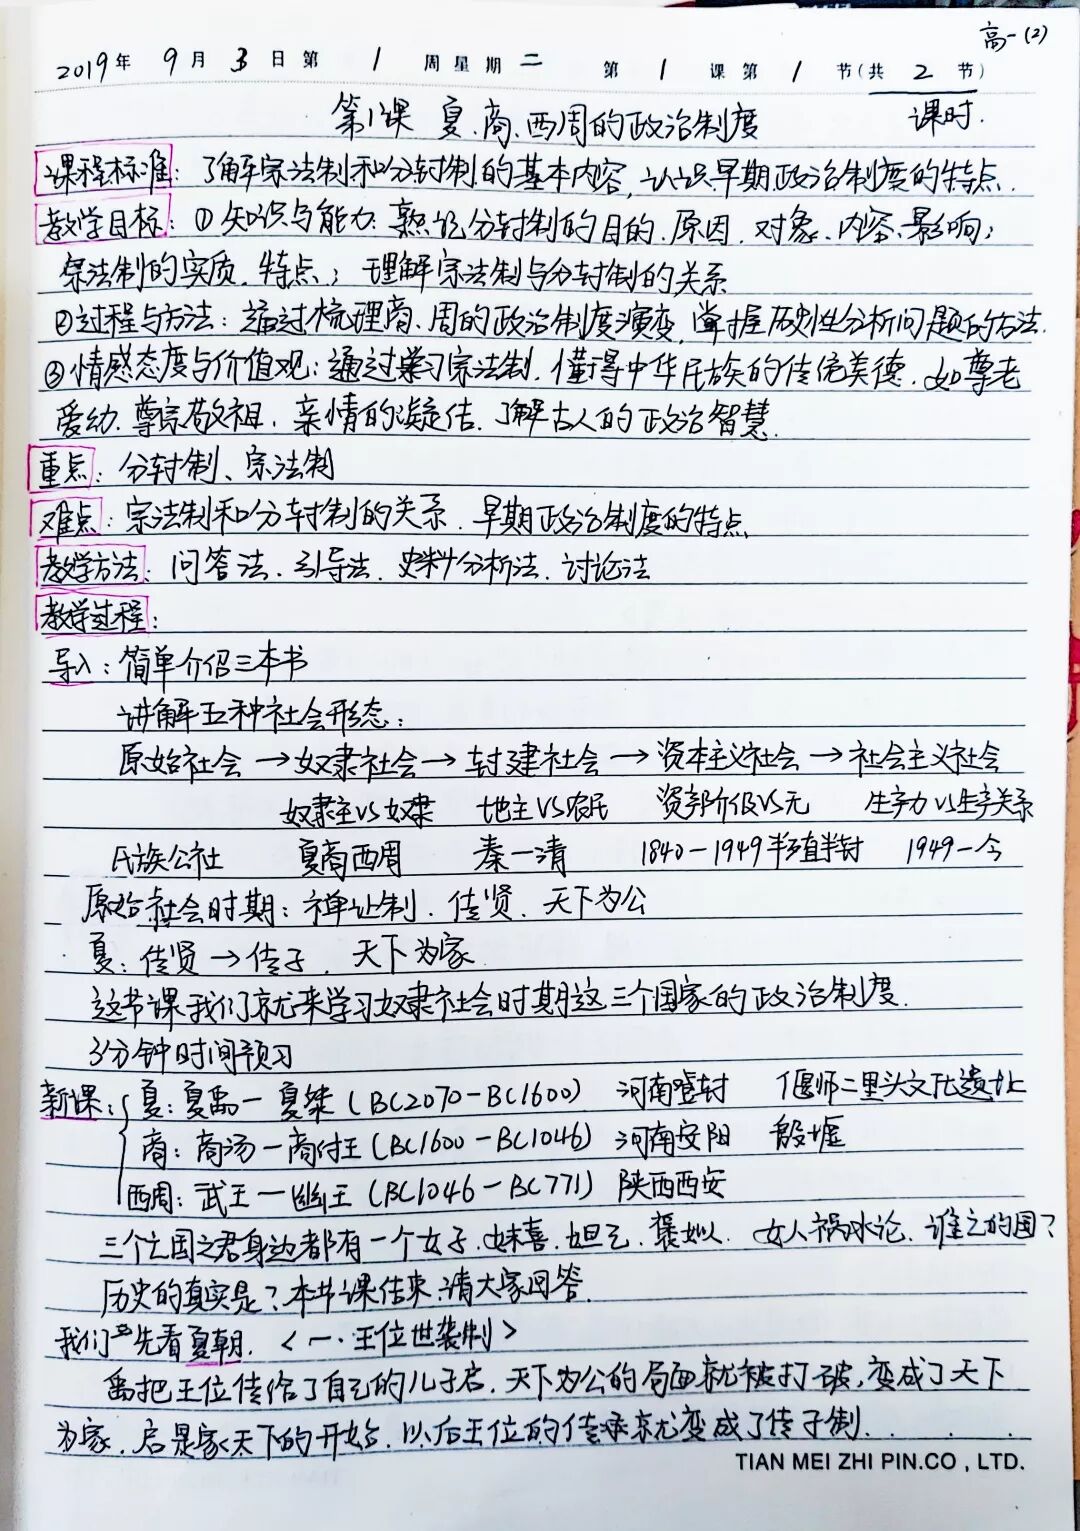 高一(2)
2019年 9月 3日 第 1 周星期二 第 1 课第 1 节(共 2 节)
第1课 夏、商、西周的政治制度 课时.
课程标准:了解宗法制和分封制的基本内容,认识早期政治制度的特点.
教学目标:①知识与能力:熟记分封制的目的、原因、对象、内容、影响;
宗法制的实质、特点;理解宗法制与分封制的关系
②过程与方法:通过梳理商、周的政治制度演变,掌握历史性分析问题的方法.
③情感态度与价值观:通过学习宗法制,懂得中华民族的传统美德,如尊老
爱幼、尊宗敬祖,亲情的凝结,了解古人的政治智慧.
重点:分封制、宗法制
难点:宗法制和分封制的关系、早期政治制度的特点
教学方法:问答法、引导法、史料分析法、讨论法
教学过程:
导入:简单介绍三本书
讲解五种社会形态:
原始社会→奴隶社会→封建社会→资本主义社会→社会主义社会
奴隶主VS奴隶 地主VS农民 资产阶级VS无 生产力VS生产关系
氏族公社 夏商西周 秦—清 1840—1949半殖半封 1949—今
原始社会时期:禅让制、传贤、天下为公
夏:传贤→传子、天下为家
这节课我们就来学习奴隶社会时期这三个国家的政治制度.
3分钟时间预习
新课:夏:夏禹—夏桀(BC2070-BC1600) 河南登封 偃师二里头文化遗址
商:商汤—商付王(BC1600-BC1046) 河南安阳 殷墟
西周:武王—幽王(BC1046-BC771) 陕西西安
三个亡国之君身边都有一个女子,妹喜、妲己、褒姒、女人祸水论、谁之的国?
历史的真实是?本节课结束请大家回答.
我们先看夏朝.<一.王位世袭制>
禹把王位传给了自己的儿子启,天下为公的局面就被打破,变成了天下
为家.启是家天下的开始,以后王位的传承就变成了传子制......
TIAN MEI ZHI PIN.CO , LTD.